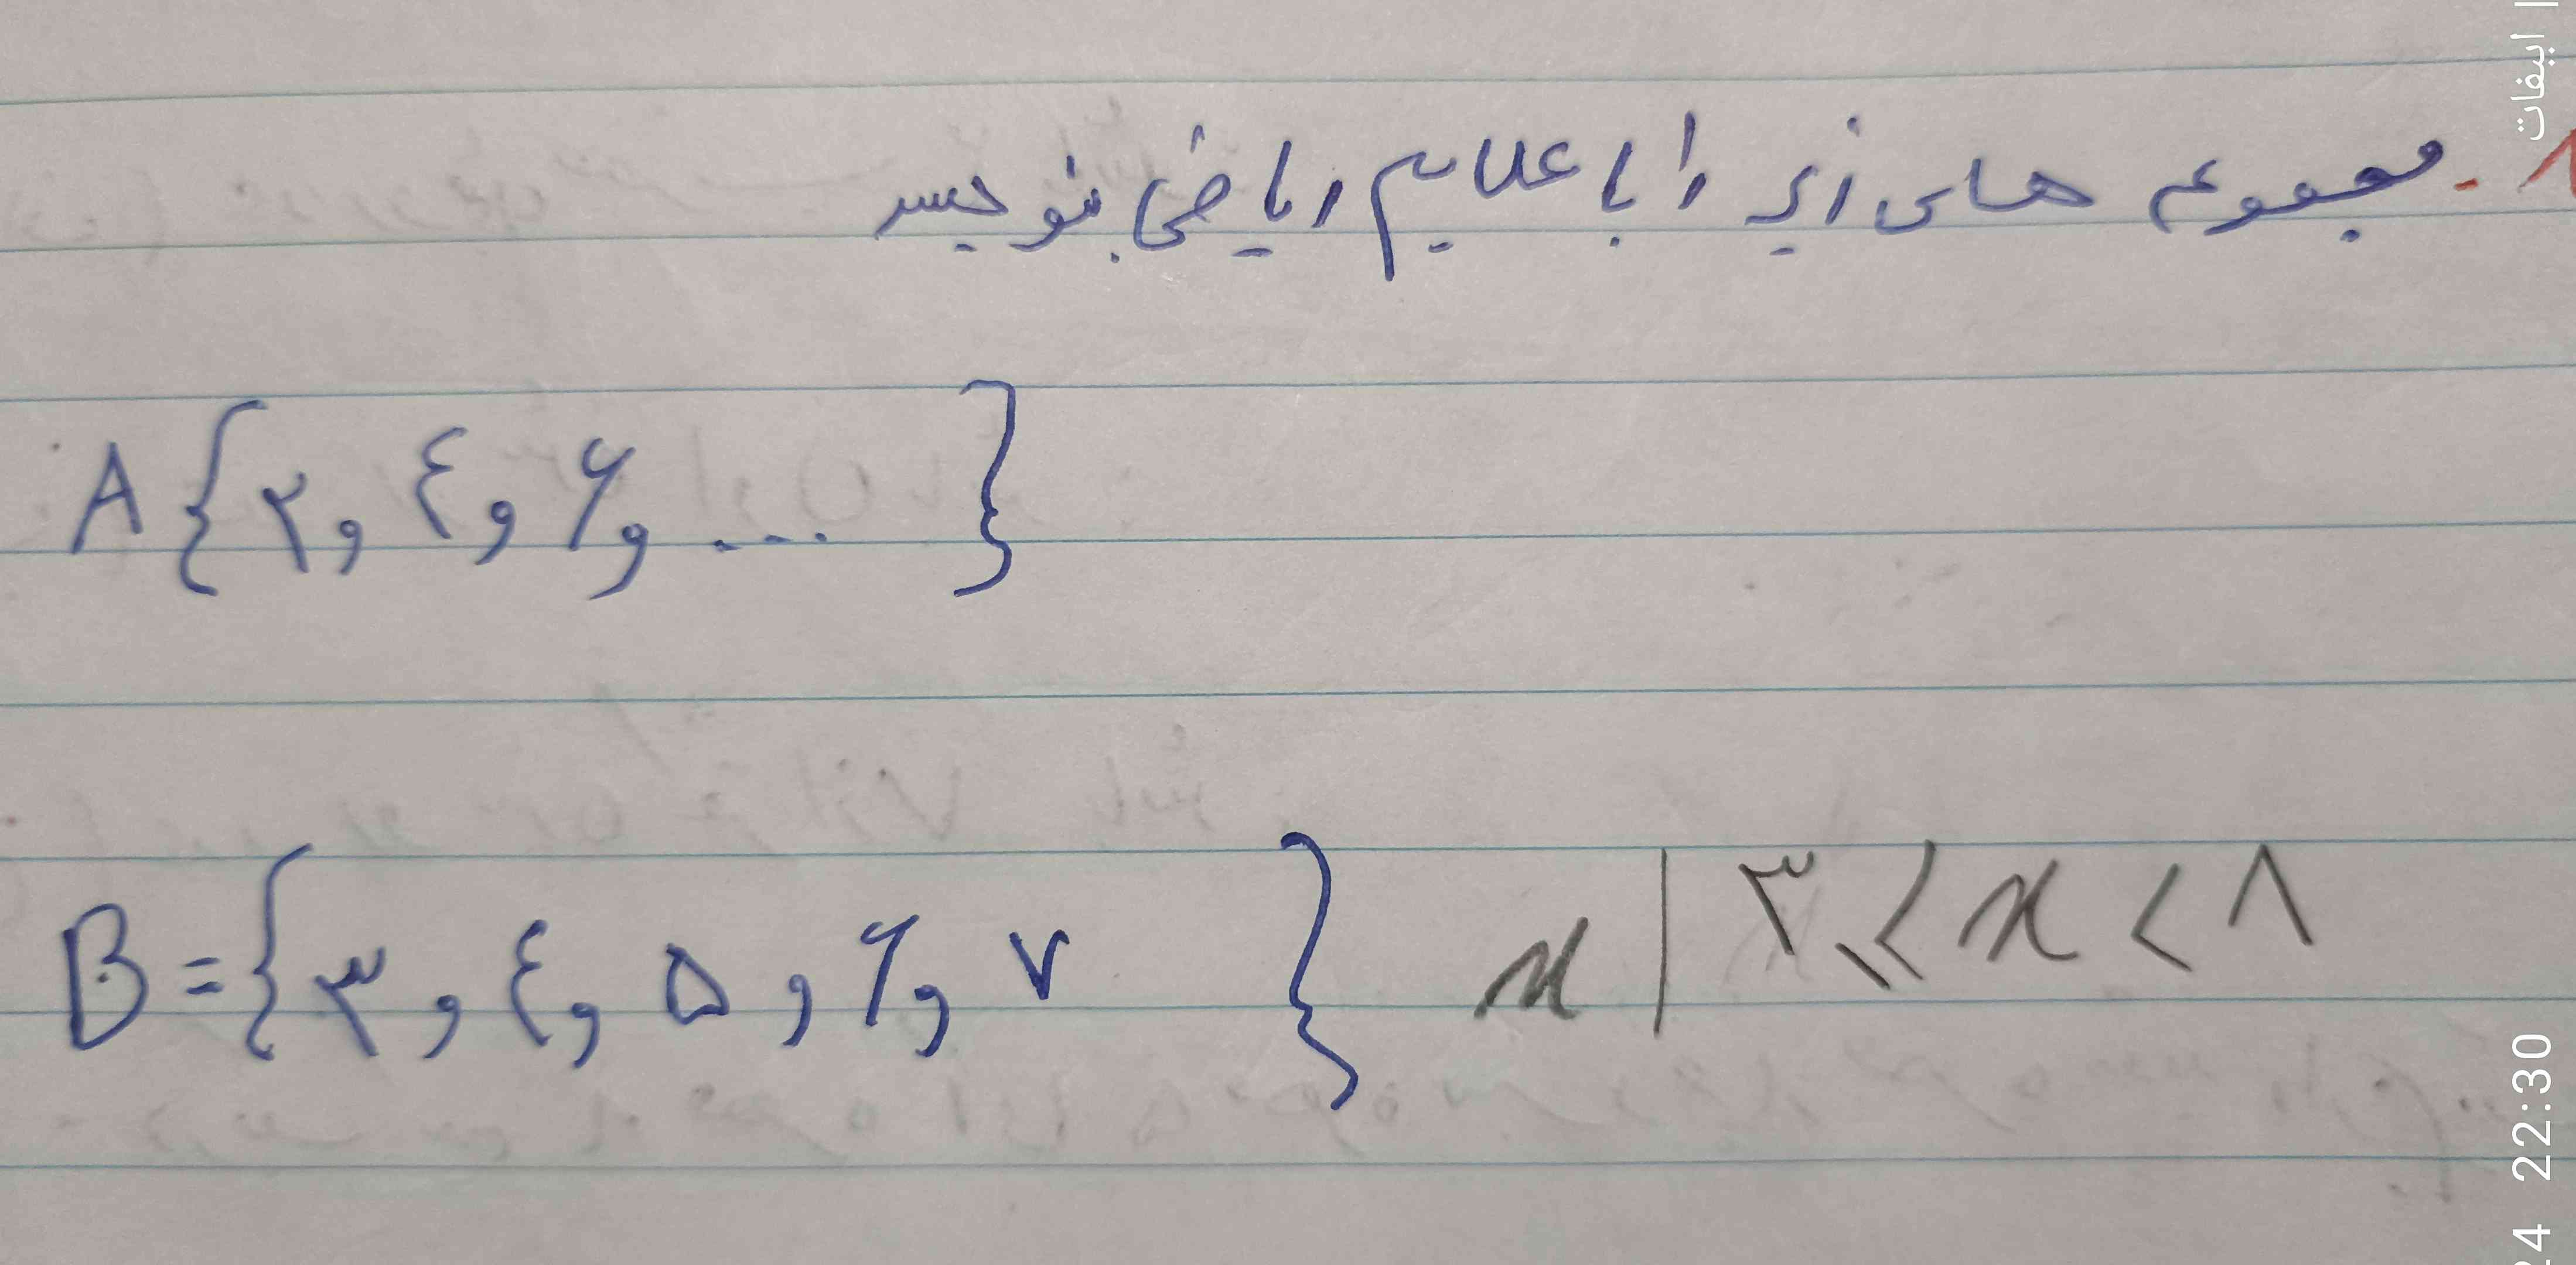 ۱- مجموعه های زیر را با علایم ریاضی بنویسد
A{۲,٤,۶,...}
B={۳,٤,۵,۶,۷} x|۳⩽x<۸
ابیفات
24 22:30